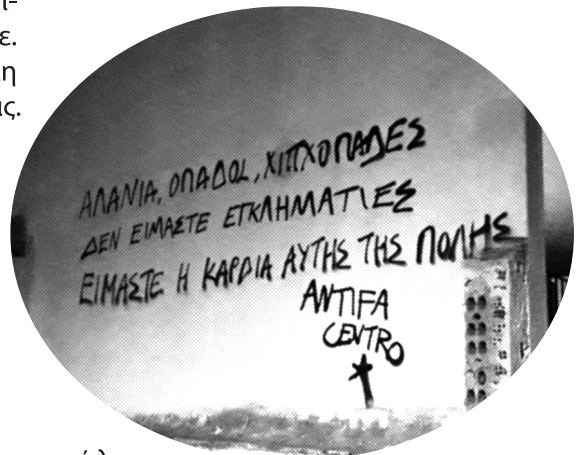 ε.
ΑΛΑΝΙΑ, ΟΠΑΔΟΙ, ΧΙΠΧΟΠΑΔΕΣ
ΔΕΝ ΕΙΜΑΣΤΕ ΕΓΚΛΗΜΑΤΙΕΣ
ΕΙΜΑΣΤΕ Η ΚΑΡΔΙΑ ΑΥΤΗΣ ΤΗΣ ΠΟΛΗΣ
ANTIFA
CENTRO